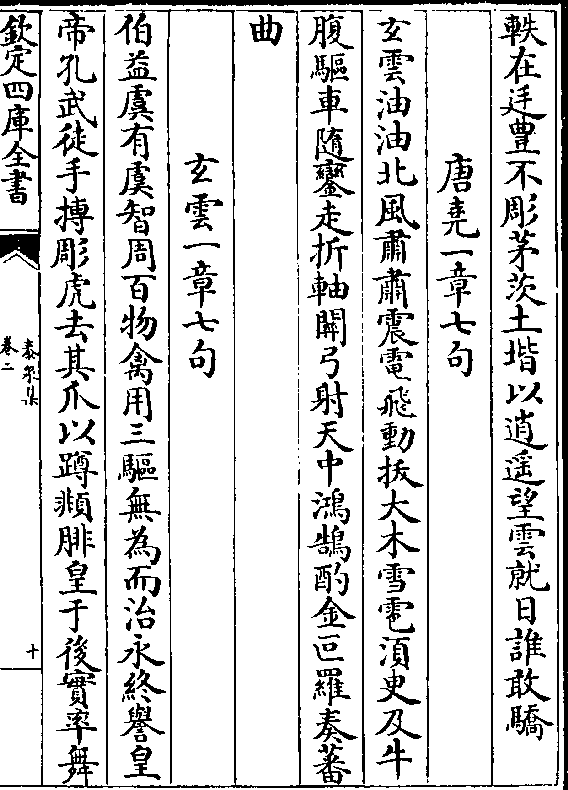 軼在廷豊不彫茅茨土堦以逍遥望雲就日誰敢驕
唐堯一章七句
玄雲油油北風肅肅震電飛動拔大木雪雹須臾及牛
腹驅車隨鑾走折軸關弓射天中鴻鵠酌金叵羅奏蕃
曲
玄雲一章七句
伯益虞有虞智周百物禽用三驅無為而治永終譽皇
帝孔武徒手摶彫虎去其爪以蹲腓皇于後實率舞
欽定四庫全書
泰泉集
卷二
十